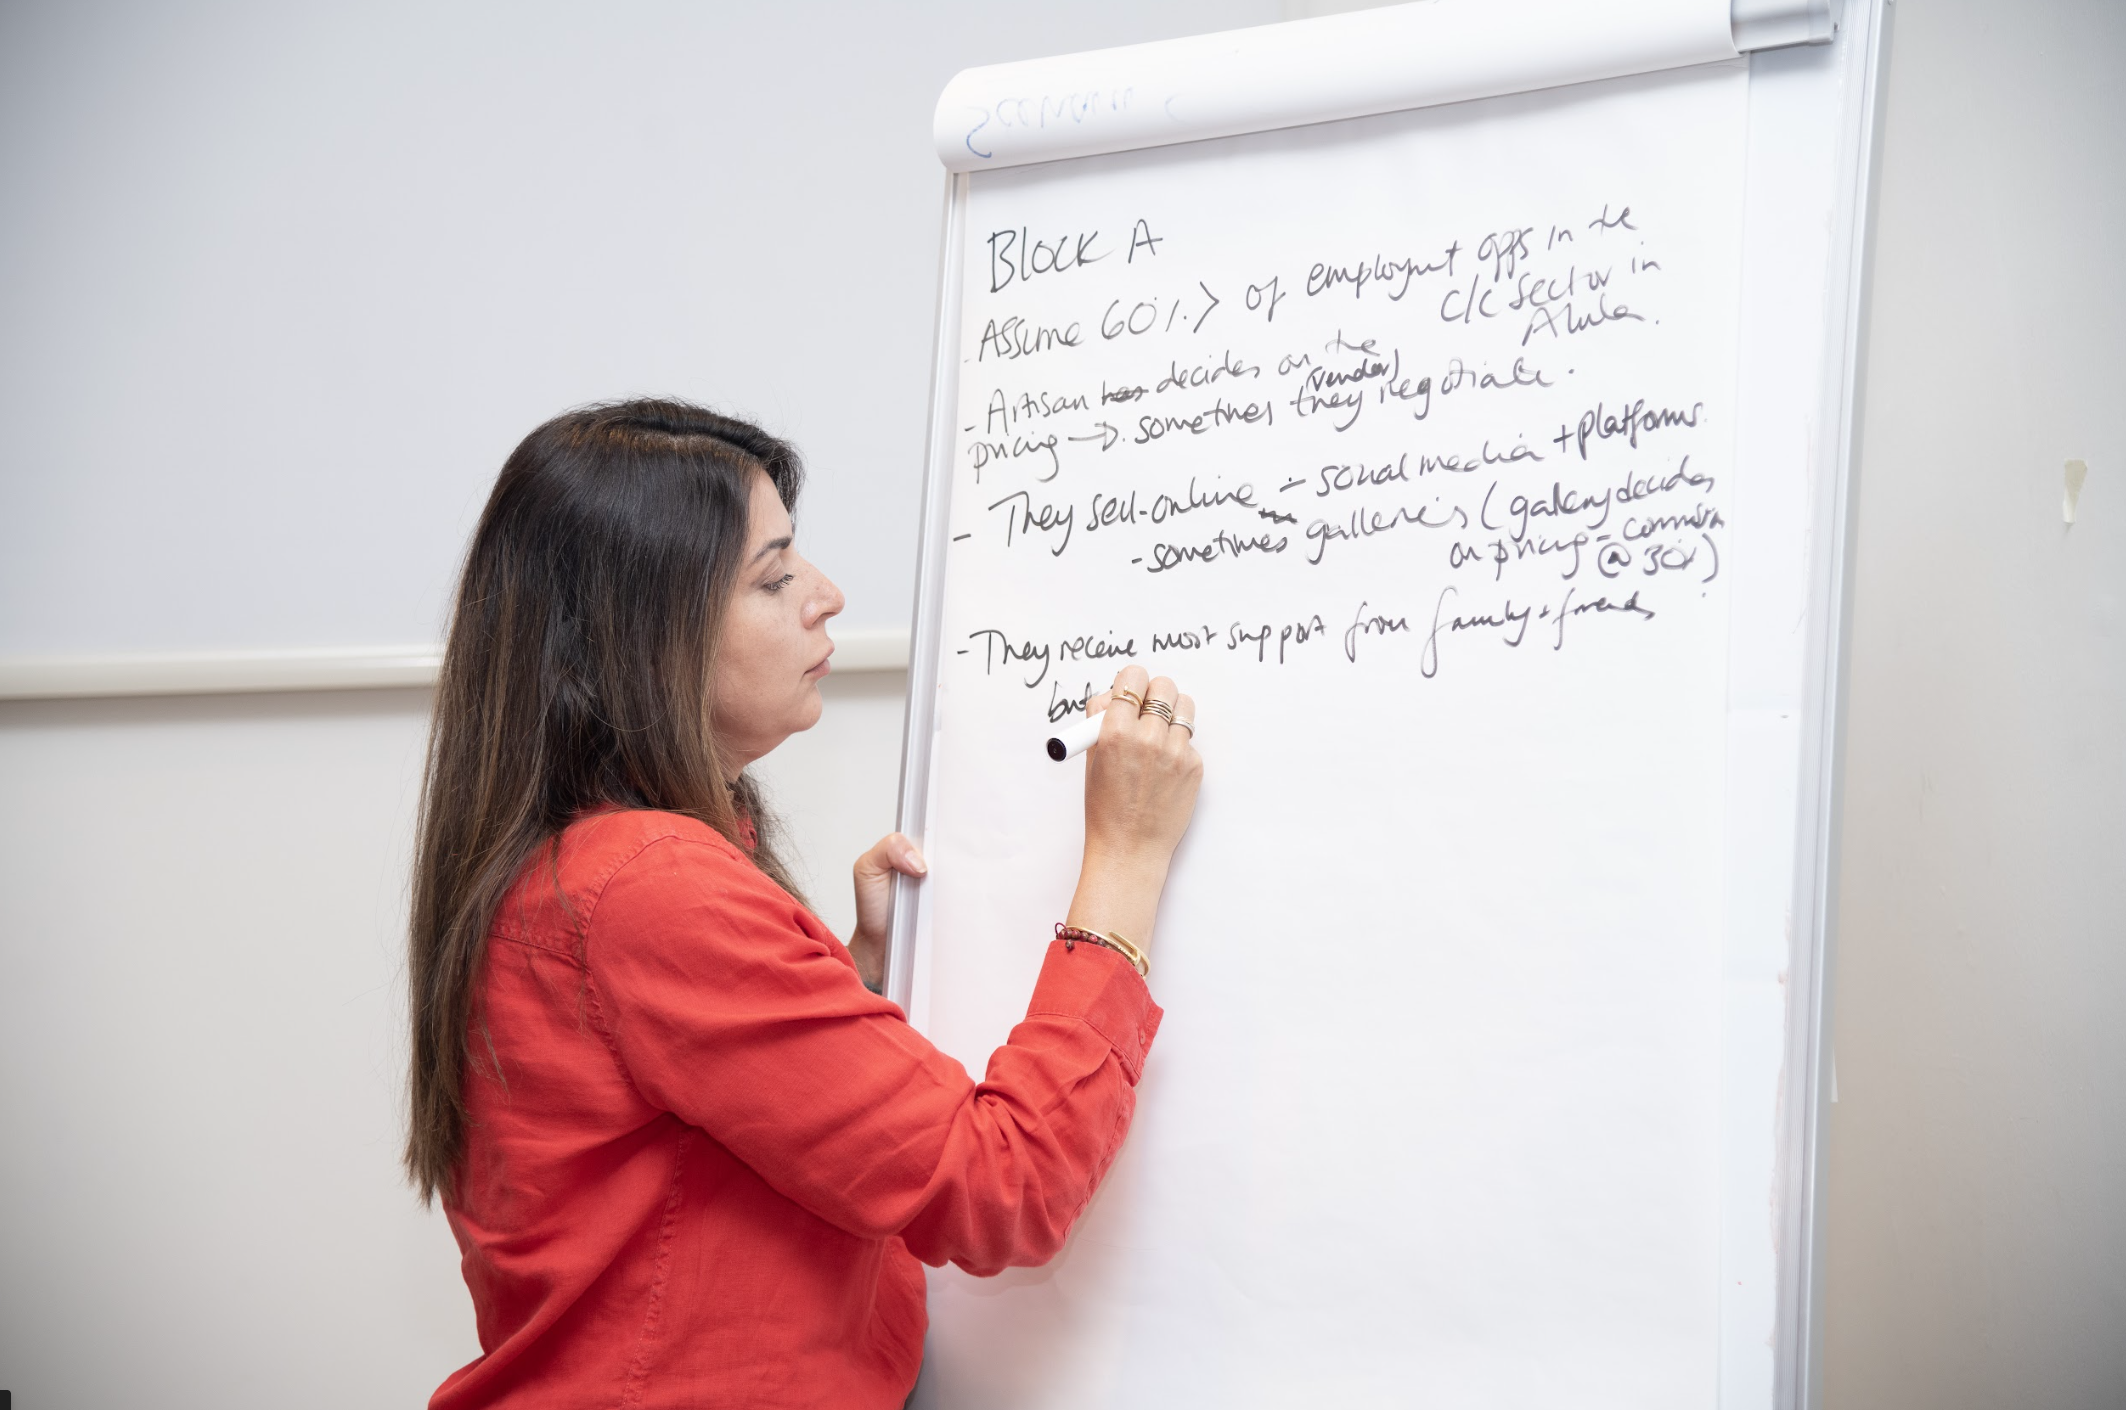 BLOCK A
- Assume 60% > of employmt opps in the
C/C sector in
Alula.
- Artisan has decides on the
(vendor)
pricing → sometimes they negotiate.
- They sell online - social media + platforms.
- sometimes galleries (gallery decides
on pricing - commission
@ 30%)
- They receive most support from family + friends
but